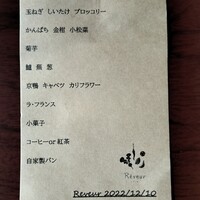 玉ねぎ しいたけ ブロッコリー
かんぱち 金柑 小松菜
菊芋
鱸 蕪 葱
京鴨 キャベツ カリフラワー
ラ・フランス
小菓子
コーヒーor紅茶
自家製パン
Rêveur
Reveur 2022/12/10